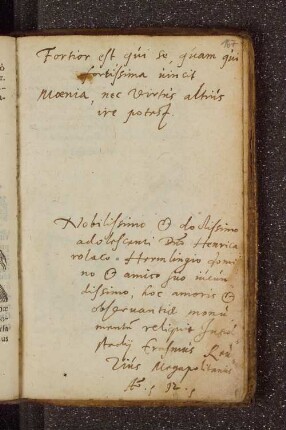 Fortior est qui se, quam qui
fortissima vincit
Mœnia, nec virtus altius
ire potest.
Nobilissimo & doctissimo
adolescenti Dno Henrico
rolaco Hermlingio Domi
no & amico suo iucun
dissimo, hoc amoris &
observantiæ monu
mentum reliquit
studij Erasmus
Megapolitanus
Ao. 92.